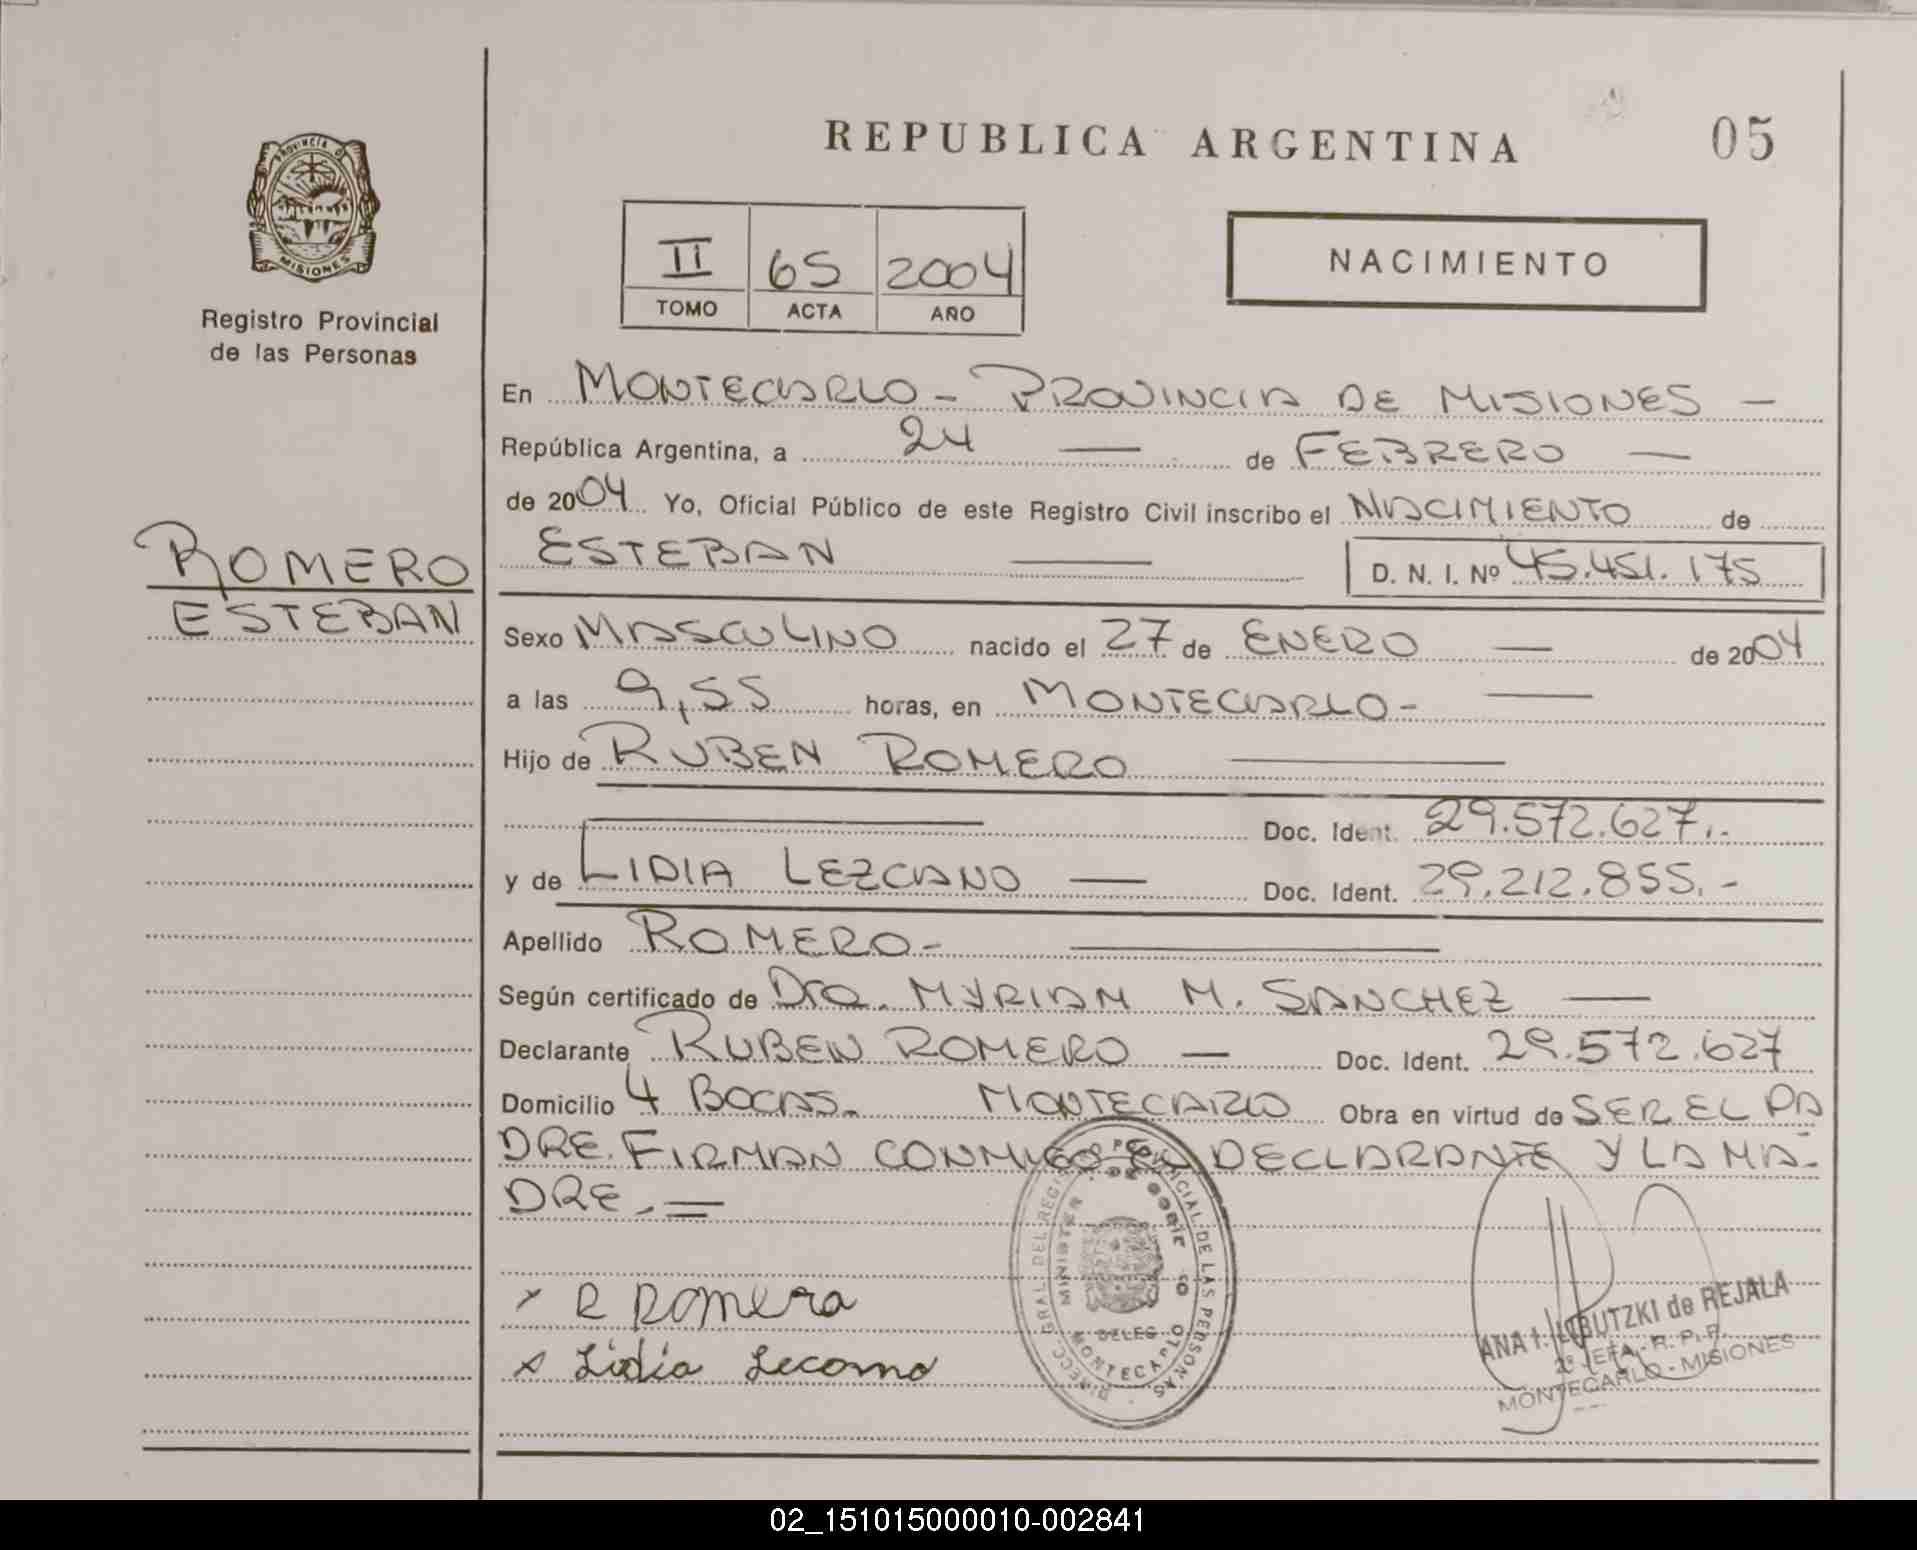 PROVINCIA DE
MISIONES
Registro Provincial
de las Personas
ROMERO
ESTEBAN
REPUBLICA ARGENTINA
05
II 65 2004
TOMO ACTA AÑO
NACIMIENTO
En MONTECARLO - PROVINCIA DE MISIONES -
República Argentina, a 24 — de FEBRERO —
de 2004 Yo, Oficial Público de este Registro Civil inscribo el NACIMIENTO de
ESTEBAN — D. N. I. Nº 45.451.175
Sexo MASCULINO nacido el 27 de ENERO — de 2004
a las 9,55 horas, en MONTECARLO - —
Hijo de RUBEN ROMERO —
Doc. Ident. 29.572.627.-
y de LIDIA LEZCANO — Doc. Ident. 29.212.855.-
Apellido ROMERO - —
Según certificado de Dra. MYRIAM M. SANCHEZ —
Declarante RUBEN ROMERO — Doc. Ident. 29.572.627
Domicilio 4 BOCAS. MONTECARLO Obra en virtud de SER EL PA
DRE. FIRMAN CONMIGO EL DECLARANTE Y LA MA-
DRE.=
x R Romero
x Lidia Lecano
DIRECC. GRAL. DEL REGIS. PROVINCIAL DE LAS PERSONAS
MINISTER. DE GOBIE
DELEG.
MONTECARLO
ANA I. LOBUTZKI de REJALA
2ª JEFA - R. P. P.
MONTECARLO - MISIONES
02_151015000010-002841